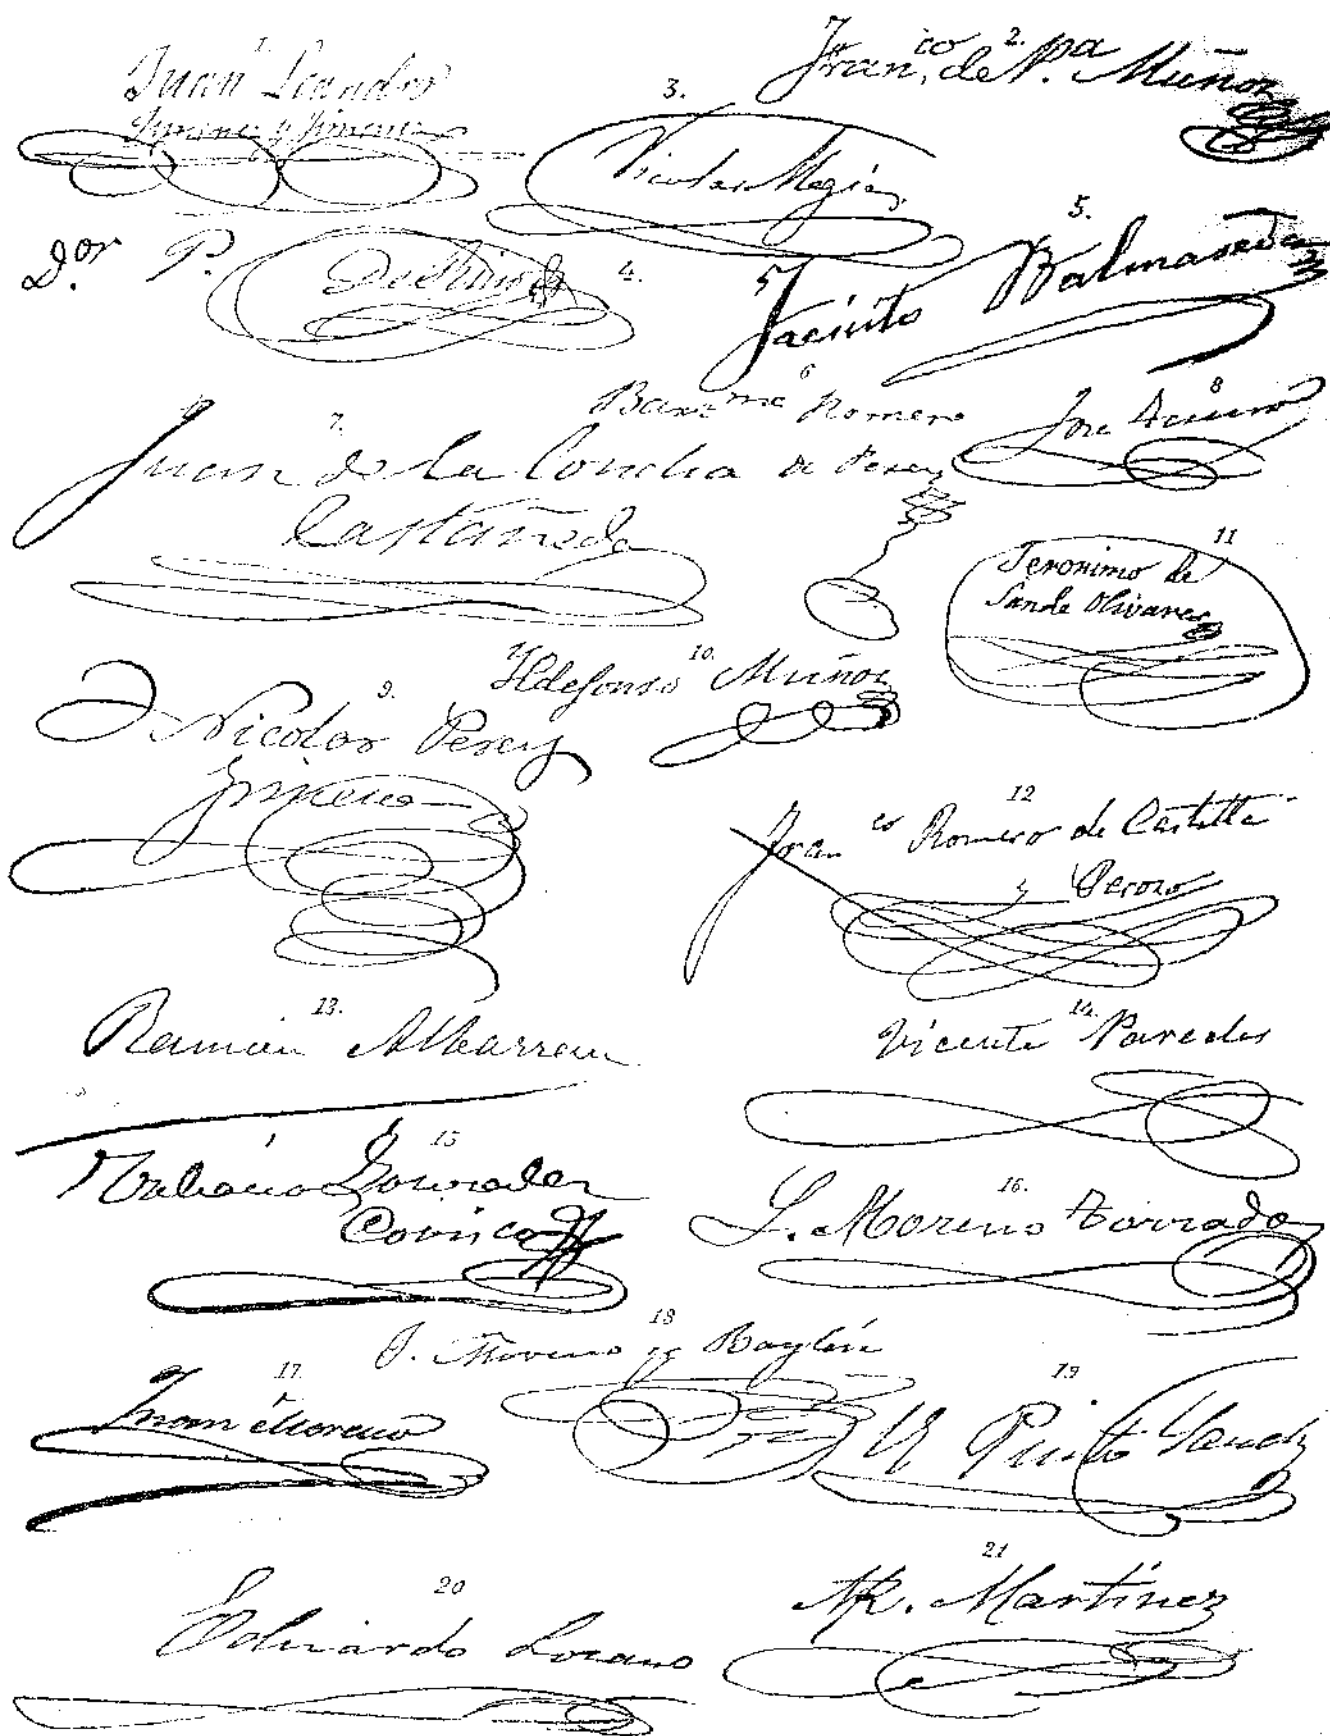 1.
Juan Leandro
Jimenez y Jimenez
2.
Fran.co de P.a Muñoz
3.
Nicolas Megia
D.or P.
4.
5.
Jacinto Balmaseda
6
Bar.me Romero
7.
Juan de la Concha de Perez
Castañeda
8
José
9.
Nicolas Perez
Jimenez
10.
Ildefonso Muñoz
11
Jeronimo de
Sande Olivares
12
Fran.co Romero de Castilla
y Perozo
13.
Ramón Albarran
14.
Vicente Paredes
15
Gonzalez
16.
L. Moreno Torrado
17.
Juan Moreno
18
J. Moreno y Baylén
19
Pinto Sanchz
20
Eduardo Lozano
21
M.R. Martínez